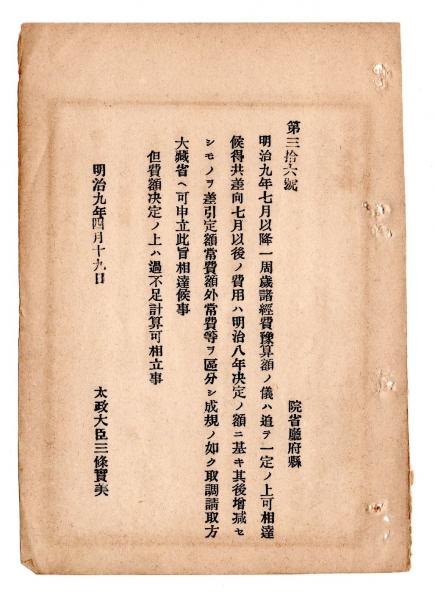 第三拾六號
院省廳府縣
明治九年七月以降一周歳諸經費豫算額ノ儀ハ追テ一定ノ上可相達
候得共差向七月以後ノ費用ハ明治八年決定ノ額ニ基キ其後增減セ
シモノヲ差引定額常費額外常費等ヲ區分シ成規ノ如ク取調請取方
大藏省ヘ可申立此旨相達候事
但費額决定ノ上ハ過不足計算可相立事
明治九年四月十九日
太政大臣三條實美